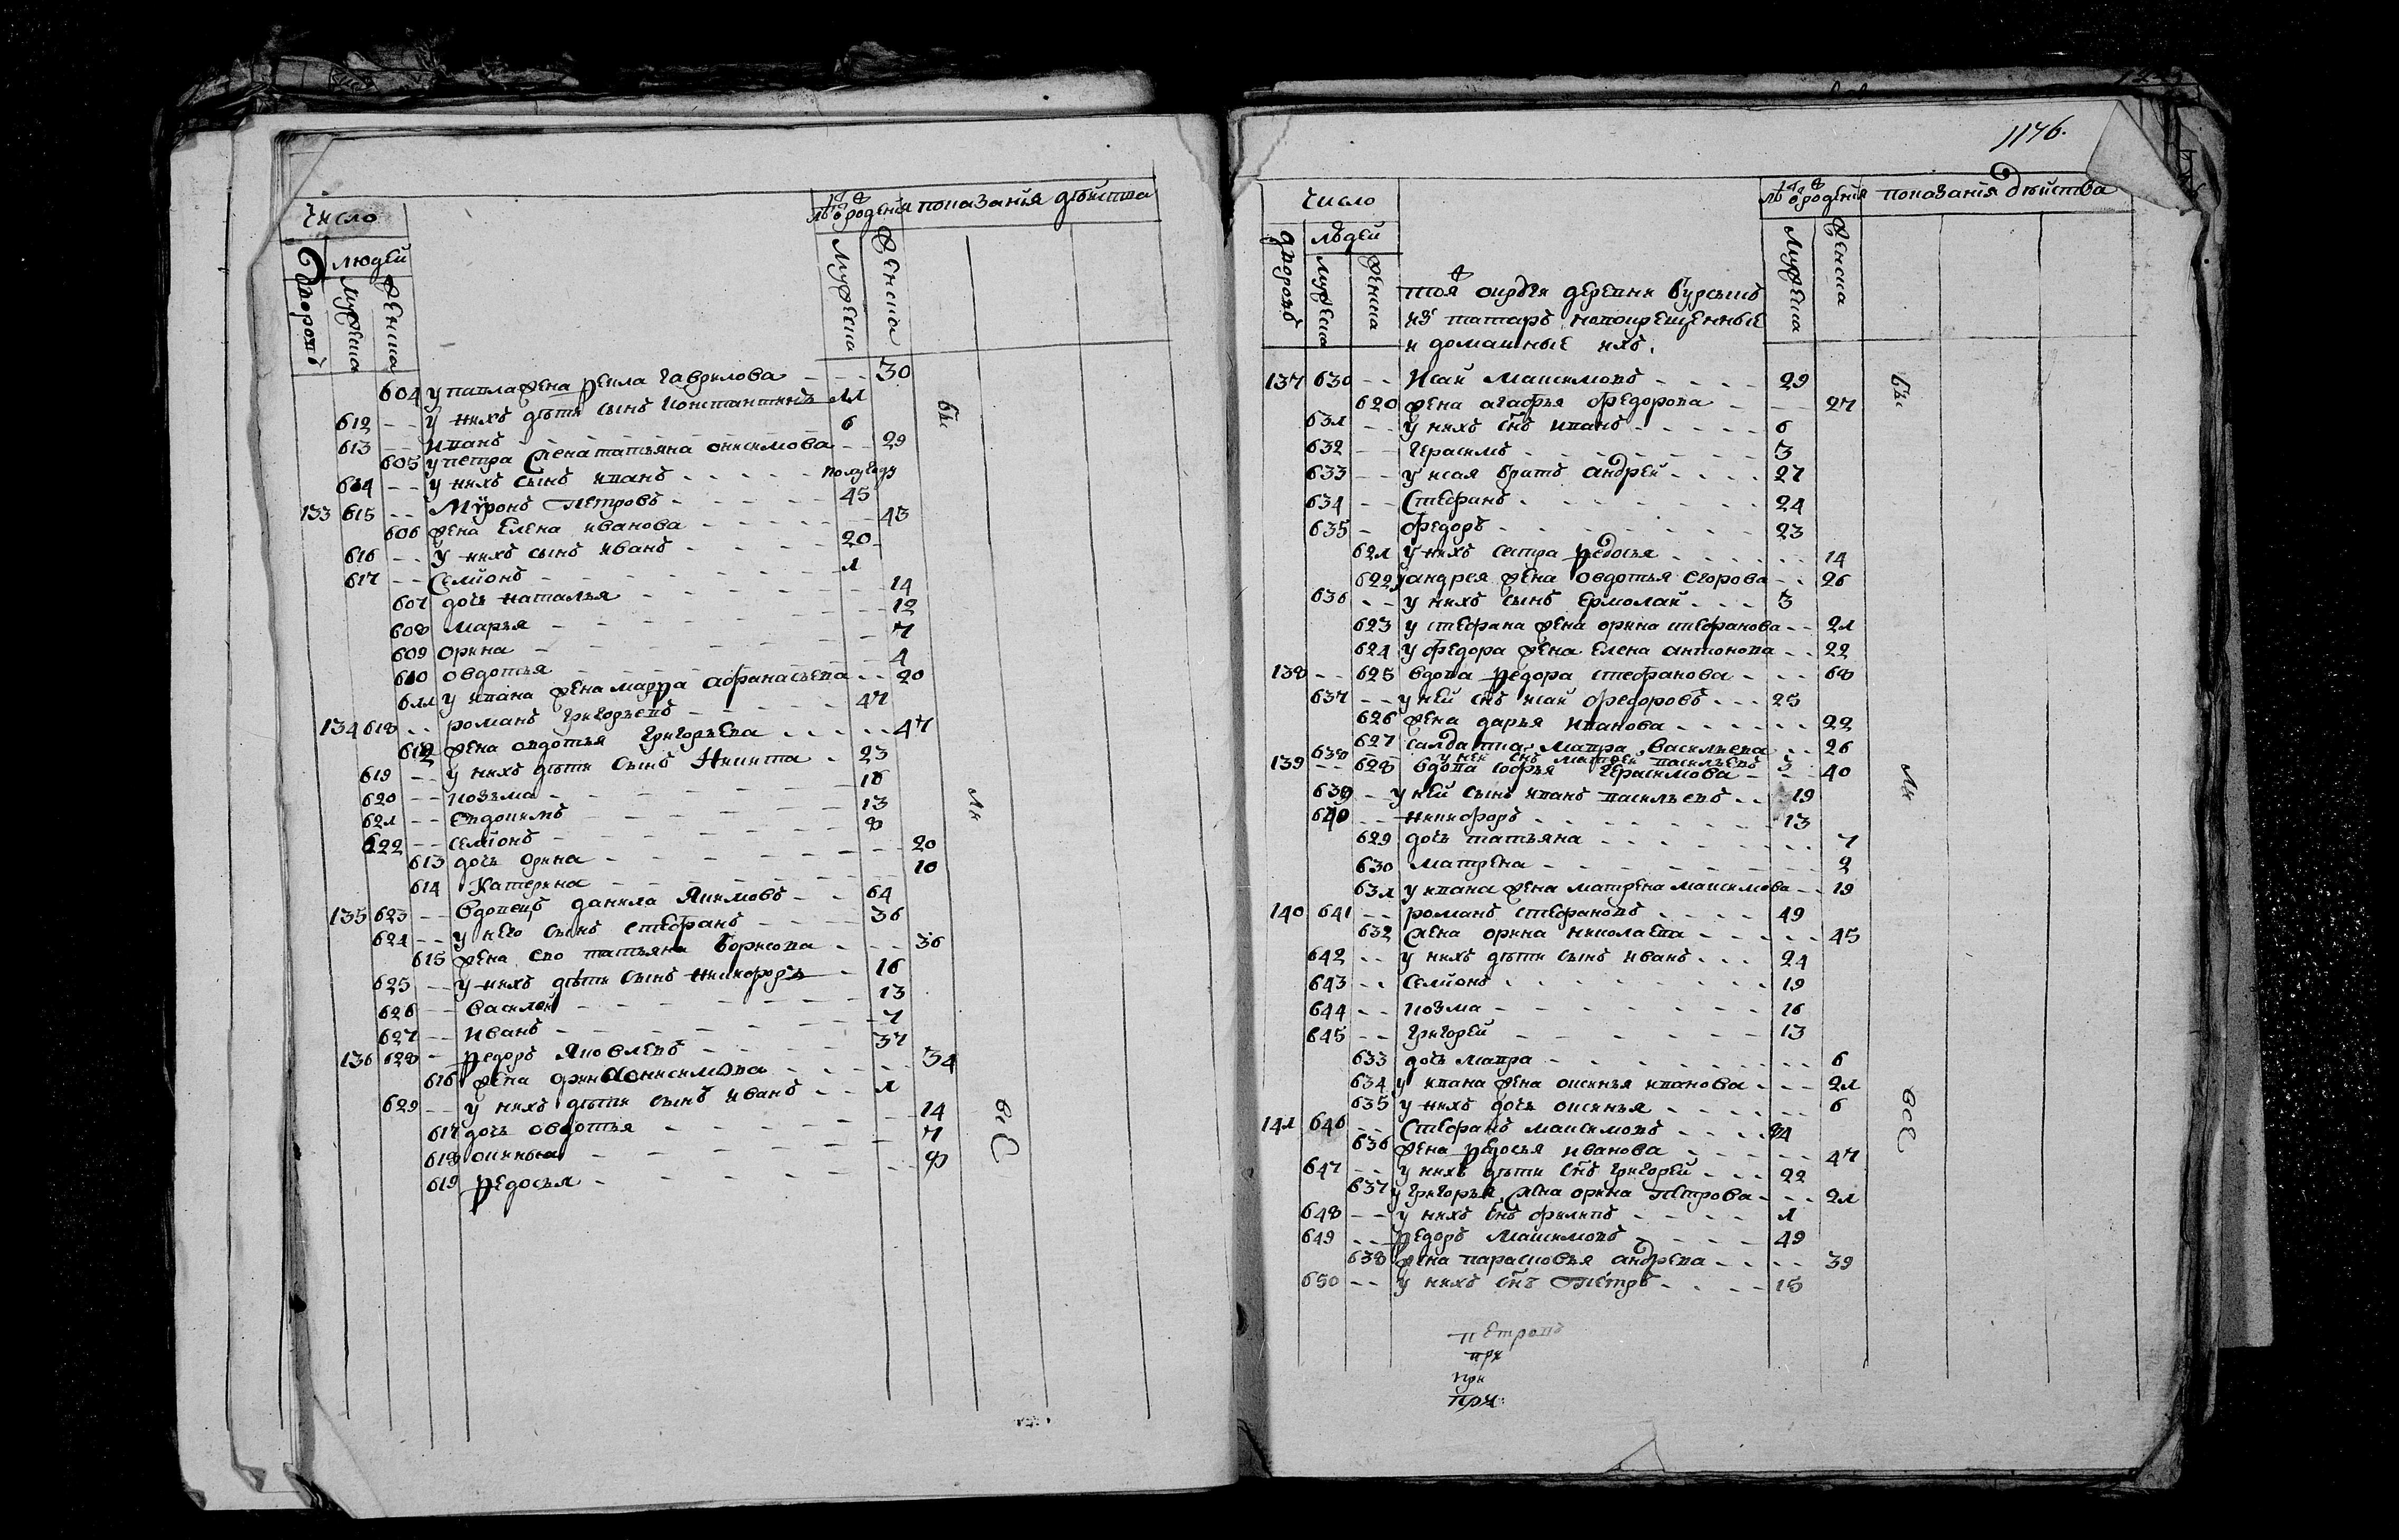 Число
лѣтъ от рождения
показанїя дѣйства
дворовъ
людей
мужеска
женска
мужеска
женска
604 у павла жена фекла гаврилова - - - 30
612 - - у нихъ дѣти сынъ константинъ 11
613 - - иванъ - - - 6
605 у петра жена татьяна онисимова - - 29
614 - - у нихъ сынъ иванъ - - - полугоду
133 615 - - Мѵронъ Петровъ - - - 45
606 жена Елена иванова - - - 43
616 - - у нихъ сынъ иванъ - - - 20
617 - - Семионъ - - - 1
607 дочь наталья - - - 14
608 марья - - - 12
609 орина - - - 7
610 овдотья - - - 4
611 у ивана жена марфа афанасьева - - 20
134 618 - - романъ григорьевъ - - - 47
612 жена овдотья григорьева - - - 47
619 - - у нихъ дѣти сынъ Никита - 23
620 - - козьма - - - 16
621 - - Евдокимъ - - - 13
622 - - семионъ - - - 8
613 дочь орина - - - 20
614 Катерина - - - 10
135 623 - - Вдовецъ данила Якимовъ - - 64
624 - - у него сынъ стефанъ - - - 36
615 жена ево татьяна борисова - - - 36
625 - - у нихъ дѣти сынъ никифоръ - 16
626 - - василей - - - 13
627 - - иванъ - - - 7
136 628 - федоръ Яковлевъ - - - 37
616 жена орина онисимова - - - 34
629 - - у нихъ дѣти сынъ иванъ - - 1
617 дочь овдотья - - - 14
618 оксинья - - - 7
619 федосья - - - 8
бы
ли
всѣ
1146.
Число
лѣтъ от рождения
показанїя дѣйства
дворовъ
людей
мужеска
женска
мужеска
женска
тоя округи деревни бурсыгъ
из татаръ новокрещенные
и домашные ихъ.
137 630 - - Исай Максимовъ - - - 29
620 жена агафья федорова - - - 27
631 - - у нихъ снъ иванъ - - - 6
632 - - герасимъ - - - 3
633 - - у исая братъ андрей - - - 27
634 - - Стефанъ - - - 24
635 - федоръ - - - 23
621 у нихъ сестра федосья - - - 14
622 у андрея жена овдотья егорова - - 26
636 - - у нихъ сынъ ермолай - - - 3
623 у стефана жена орина стефанова - - 21
624 у федора жена елена антонова - - 22
138 - - 625 вдова федора стефанова - - - 68
637 - - у ней снъ исай федоровъ - - - 25
626 жена дарья иванова - - - 22
627 салдатка марфа васильева - - 26
638 у ней снъ матфей васильевъ 3
139 - - 628 вдова софья герасимова - - - 40
639 - - у ней сынъ иванъ васильевъ - - 19
640 - - никифоръ - - - 13
629 дочь татьяна - - - 7
630 матрена - - - 2
631 у ивана жена матрена максимова - - 19
140 641 - - романъ стефановъ - - - 49
632 жена орина николаева - - - 45
642 - - у нихъ дѣти сынъ иванъ - - - 24
643 - - семионъ - - - 19
644 - - козма - - - 16
645 - - григорей - - - 13
633 дочь мавра - - - 6
634 у ивана жена оксинья иванова - - - 21
635 у нихъ дочь оксинья - - - 6
141 646 - - Стефанъ максимовъ - - - 44
636 жена федосья иванова - - - 47
647 - - у нихъ дѣти снъ григорей - - - 22
637 у григорья жена орина петрова - - - 21
648 - - у нихъ снъ филипъ - - - 1
649 - - федоръ максимовъ - - - 49
638 жена парасковья андреева - - - 39
650 - - у нихъ снъ Петръ - - - 15
бы
ли
всѣ
петровъ
при
при
при